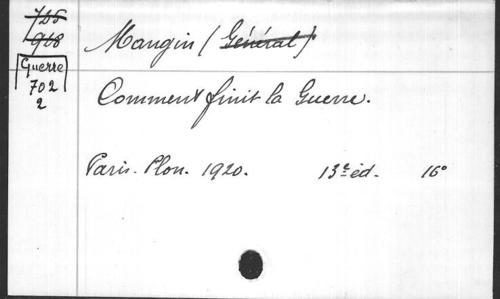 725
968
Guerre
702
2
Mangin (Général)
Comment finit la Guerre.
Paris. Plon. 1920. 13e éd. 16°